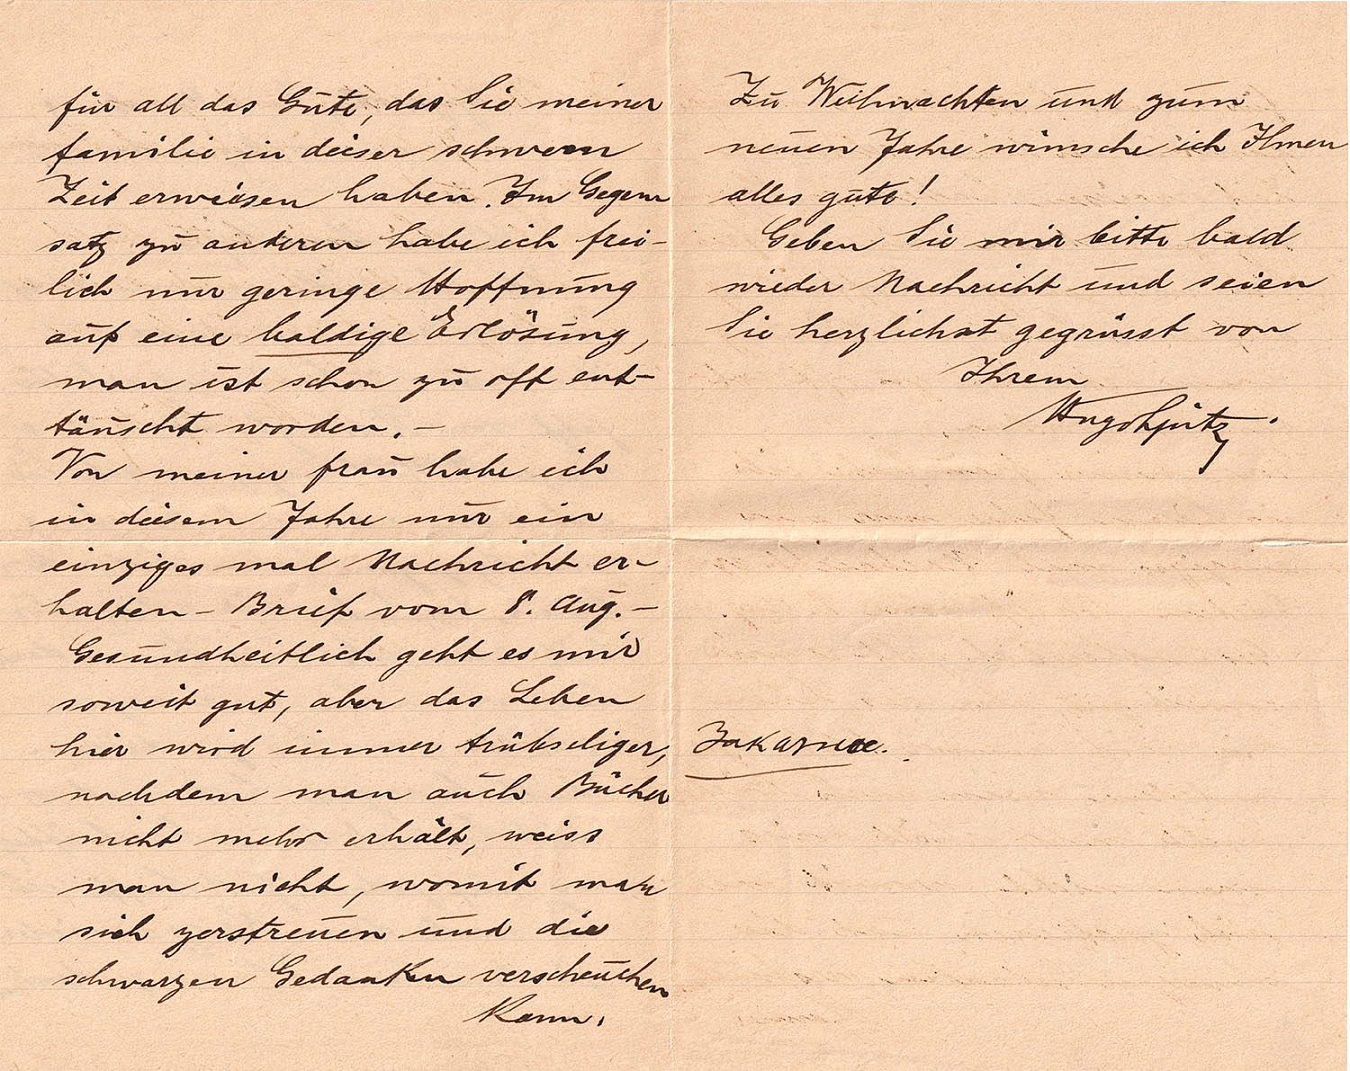 für all das Gute, das Sie meiner
Familie in dieser schweren
Zeit erwiesen haben. Im Gegen
satz zu anderen habe ich frei-
lich nur geringe Hoffnung
auf eine baldige Erlösung,
man ist schon zu oft ent-
täuscht worden. –
Von meiner Frau habe ich
in diesem Jahre nur ein
einziges mal Nachricht er-
halten – Brief vom 8. Aug. –
Gesundheitlich geht es mir
soweit gut, aber das Leben
hier wird immer trübseliger,
nachdem man auch Bücher
nicht mehr erhält, weiss
man nicht, womit man
sich zerstreuen und die
schwarzen Gedanken verscheuchen
kann.
Zu Weihnachten und zum
neuen Jahre wünsche ich Ihnen
alles gute!
Geben Sie mir bitte bald
wieder Nachricht und seien
Sie herzlichst gegrüsst von
Ihrem
Hugo Spitz.